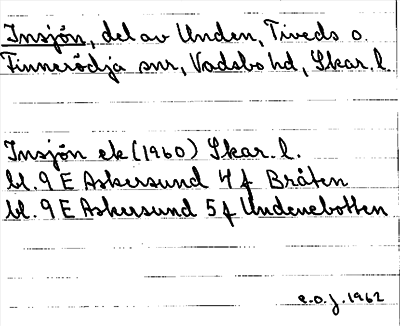 Insjön, del av Unden, Tiveds o.
Finnerödja snr, Vadsbo hd, Skar. l.
Insjön ek (1960) Skar. l.
bl. 9 E Askersund 4 f Bråten
bl. 9 E Askersund 5 f Undenebotten
e.o.j. 1962